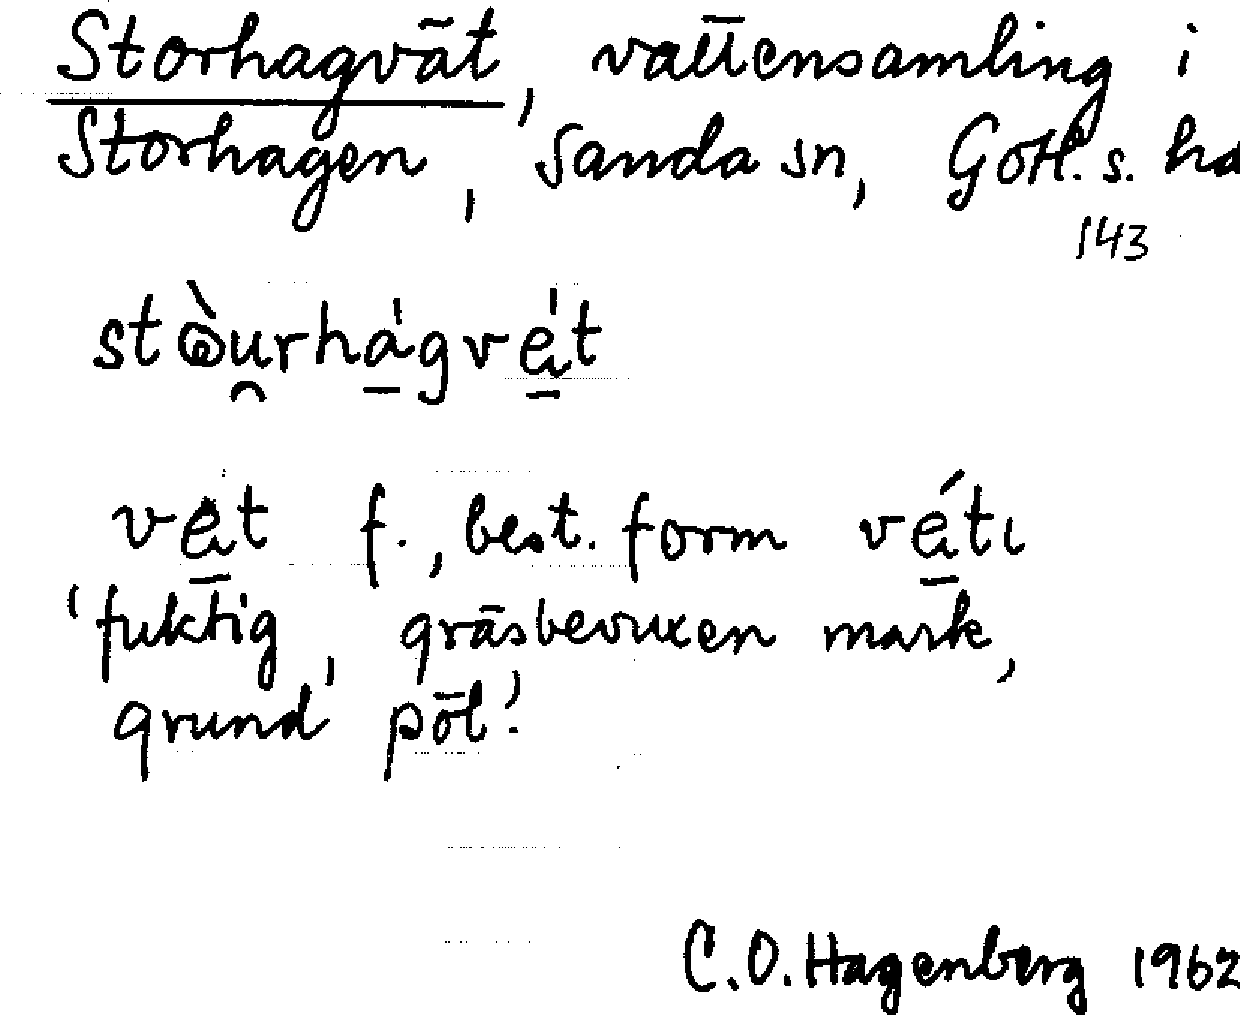 Storhagvät, vattensamling i
Storhagen, Sanda sn, Gotl. s. hd
143
f., best. form
'fuktig, gräsbevuxen mark,
grund pöl'.
C.O. Hagenberg 1962